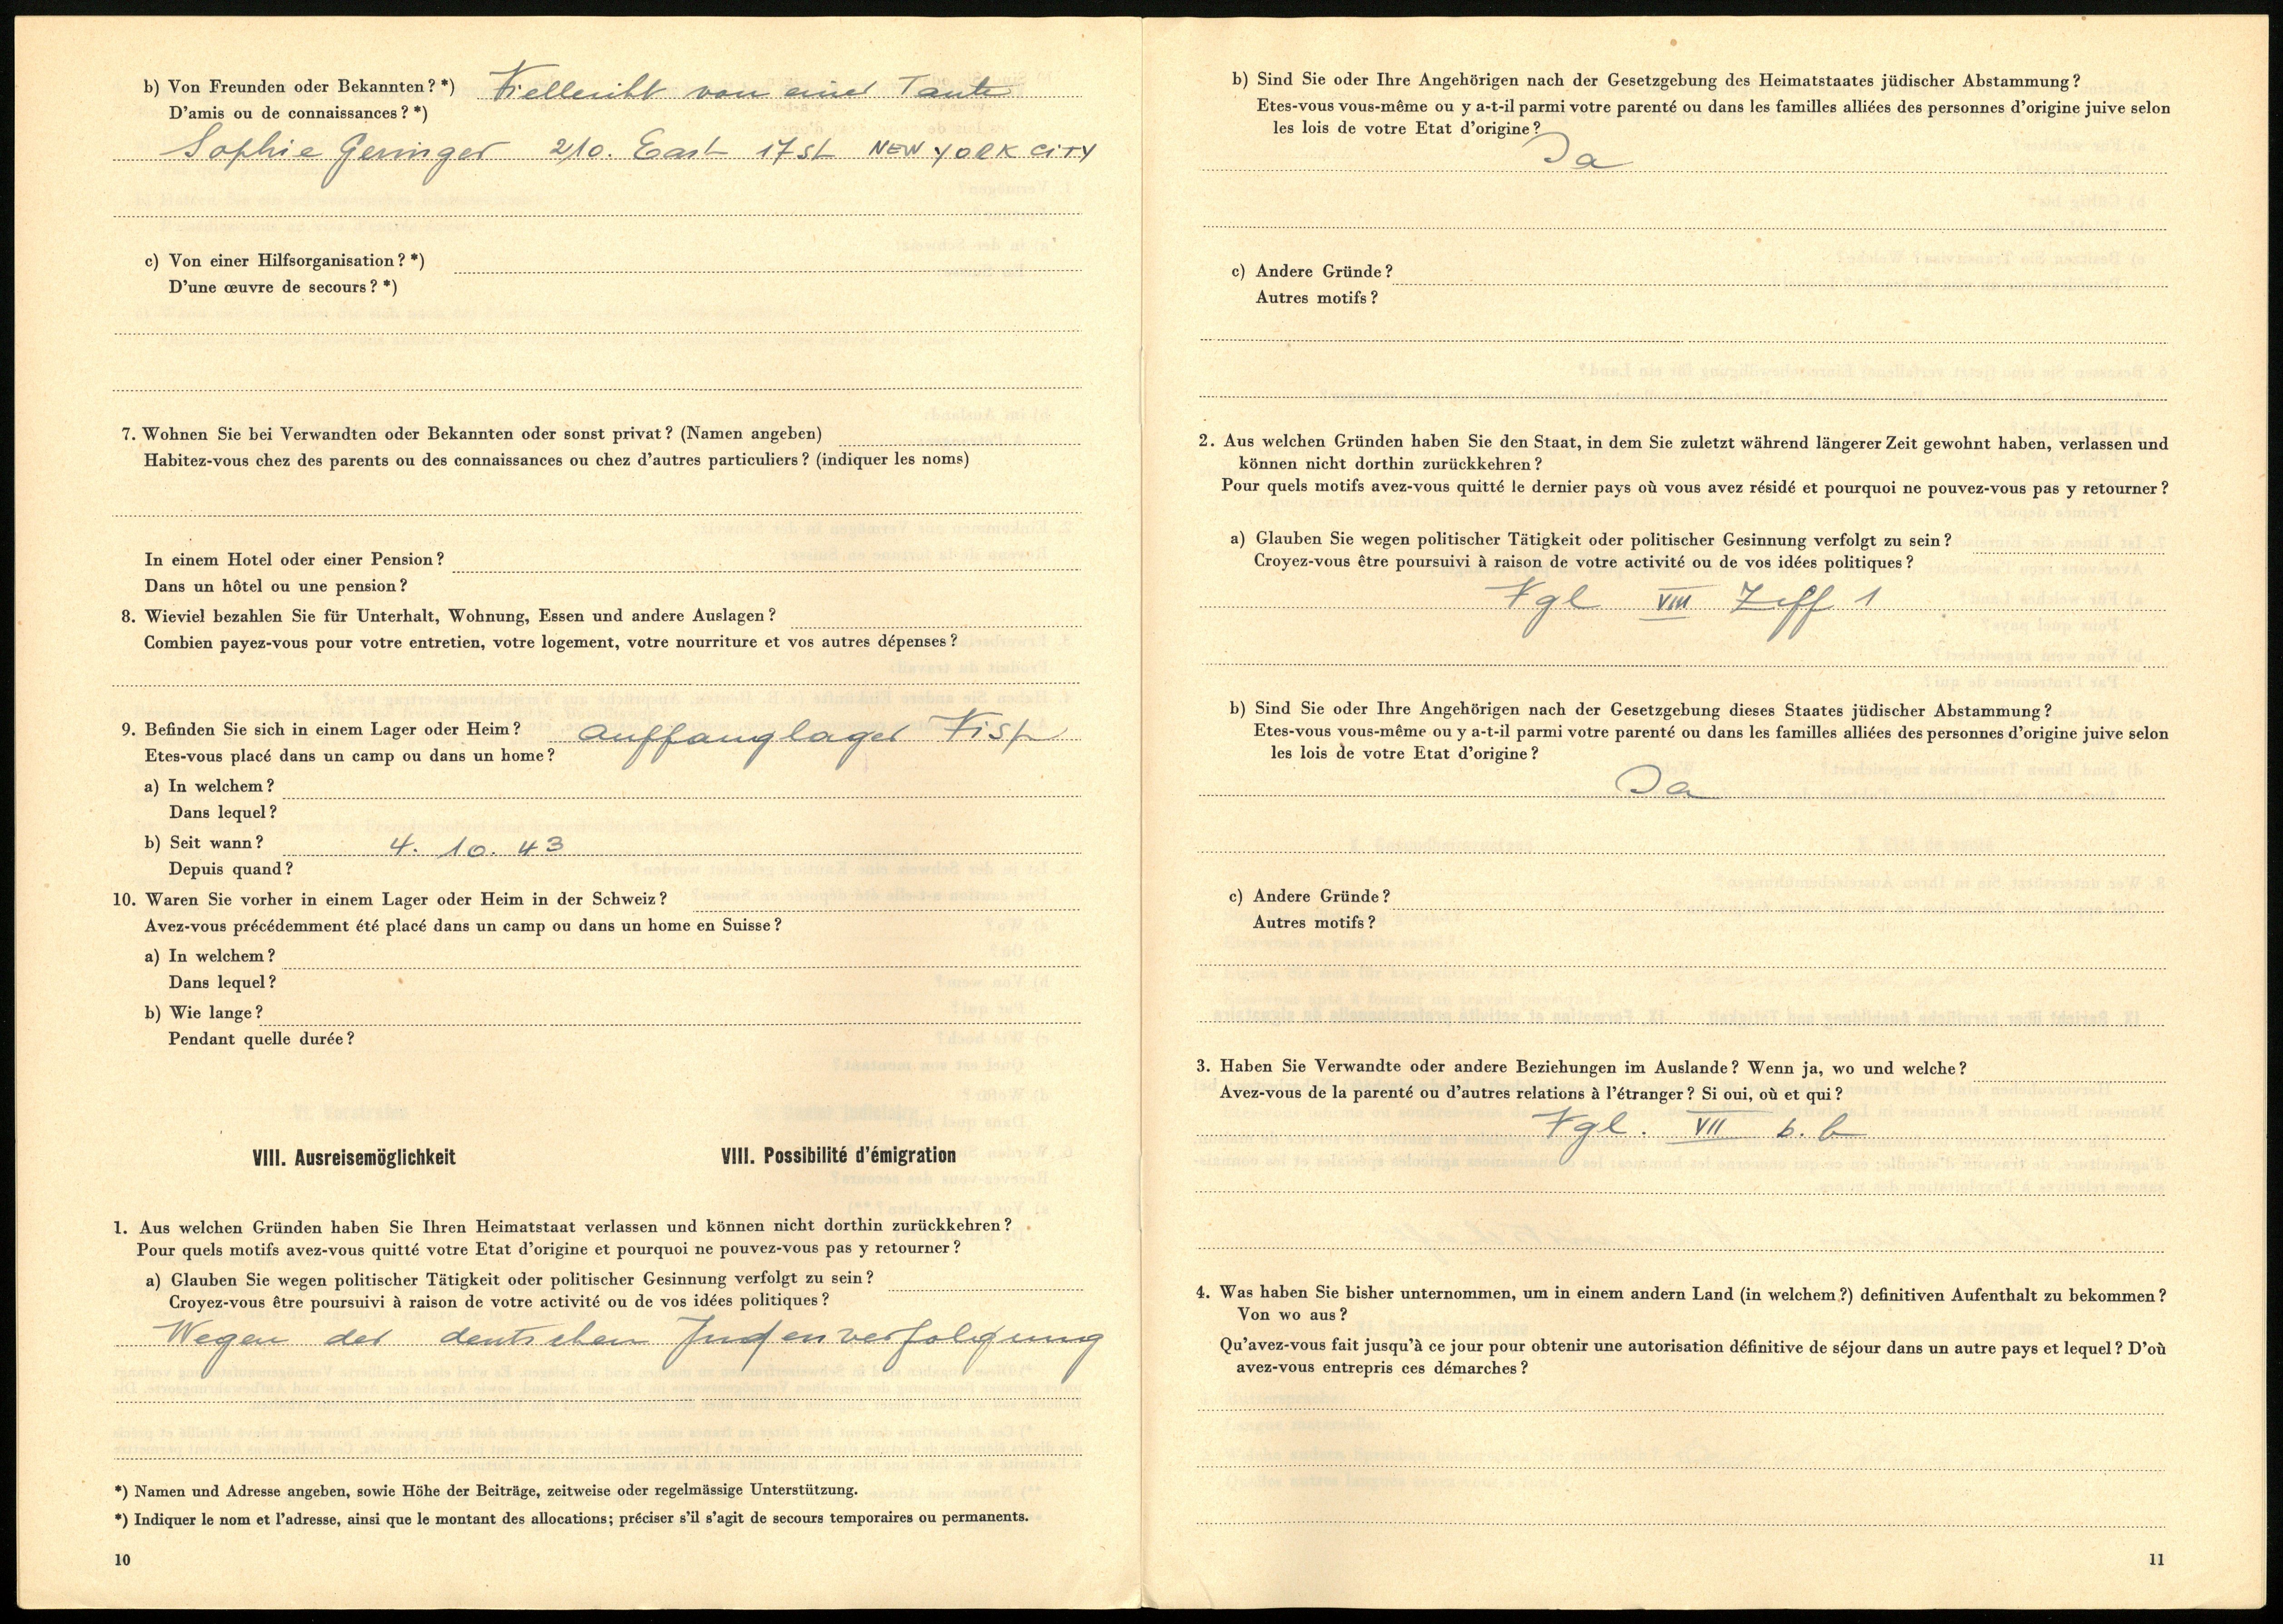 b) Von Freunden oder Bekannten? *) Vielleicht von einer Tante
D'amis ou de connaissances? *)
Sophie Geringer 210. East 17 St NEW YORK CITY
c) Von einer Hilfsorganisation? *)
D'une œuvre de secours? *)
7. Wohnen Sie bei Verwandten oder Bekannten oder sonst privat? (Namen angeben)
Habitez-vous chez des parents ou des connaissances ou chez d'autres particuliers? (indiquer les noms)
In einem Hotel oder einer Pension?
Dans un hôtel ou une pension?
8. Wieviel bezahlen Sie für Unterhalt, Wohnung, Essen und andere Auslagen?
Combien payez-vous pour votre entretien, votre logement, votre nourriture et vos autres dépenses?
9. Befinden Sie sich in einem Lager oder Heim? Auffanglager Visp
Etes-vous placé dans un camp ou dans un home?
a) In welchem?
Dans lequel?
b) Seit wann? 4. 10. 43
Depuis quand?
10. Waren Sie vorher in einem Lager oder Heim in der Schweiz?
Avez-vous précédemment été placé dans un camp ou dans un home en Suisse?
a) In welchem?
Dans lequel?
b) Wie lange?
Pendant quelle durée?
VIII. Ausreisemöglichkeit VIII. Possibilité d'émigration
1. Aus welchen Gründen haben Sie Ihren Heimatstaat verlassen und können nicht dorthin zurückkehren?
Pour quels motifs avez-vous quitté votre Etat d'origine et pourquoi ne pouvez-vous pas y retourner?
a) Glauben Sie wegen politischer Tätigkeit oder politischer Gesinnung verfolgt zu sein?
Croyez-vous être poursuivi à raison de votre activité ou de vos idées politiques?
Wegen der deutschen Judenverfolgung
*) Namen und Adresse angeben, sowie Höhe der Beiträge, zeitweise oder regelmässige Unterstützung.
*) Indiquer le nom et l'adresse, ainsi que le montant des allocations; préciser s'il s'agit de secours temporaires ou permanents.
10
b) Sind Sie oder Ihre Angehörigen nach der Gesetzgebung des Heimatstaates jüdischer Abstammung?
Etes-vous vous-même ou y a-t-il parmi votre parenté ou dans les familles alliées des personnes d'origine juive selon
les lois de votre Etat d'origine?
Ja
c) Andere Gründe?
Autres motifs?
2. Aus welchen Gründen haben Sie den Staat, in dem Sie zuletzt während längerer Zeit gewohnt haben, verlassen und
können nicht dorthin zurückkehren?
Pour quels motifs avez-vous quitté le dernier pays où vous avez résidé et pourquoi ne pouvez-vous pas y retourner?
a) Glauben Sie wegen politischer Tätigkeit oder politischer Gesinnung verfolgt zu sein?
Croyez-vous être poursuivi à raison de votre activité ou de vos idées politiques?
Vgl VIII Ziff 1
b) Sind Sie oder Ihre Angehörigen nach der Gesetzgebung dieses Staates jüdischer Abstammung?
Etes-vous vous-même ou y a-t-il parmi votre parenté ou dans les familles alliées des personnes d'origine juive selon
les lois de votre Etat d'origine?
Ja
c) Andere Gründe?
Autres motifs?
3. Haben Sie Verwandte oder andere Beziehungen im Auslande? Wenn ja, wo und welche?
Avez-vous de la parenté ou d'autres relations à l'étranger? Si oui, où et qui?
Vgl. VII 6. b
4. Was haben Sie bisher unternommen, um in einem andern Land (in welchem?) definitiven Aufenthalt zu bekommen?
Von wo aus?
Qu'avez-vous fait jusqu'à ce jour pour obtenir une autorisation définitive de séjour dans un autre pays et lequel? D'où
avez-vous entrepris ces démarches?
11